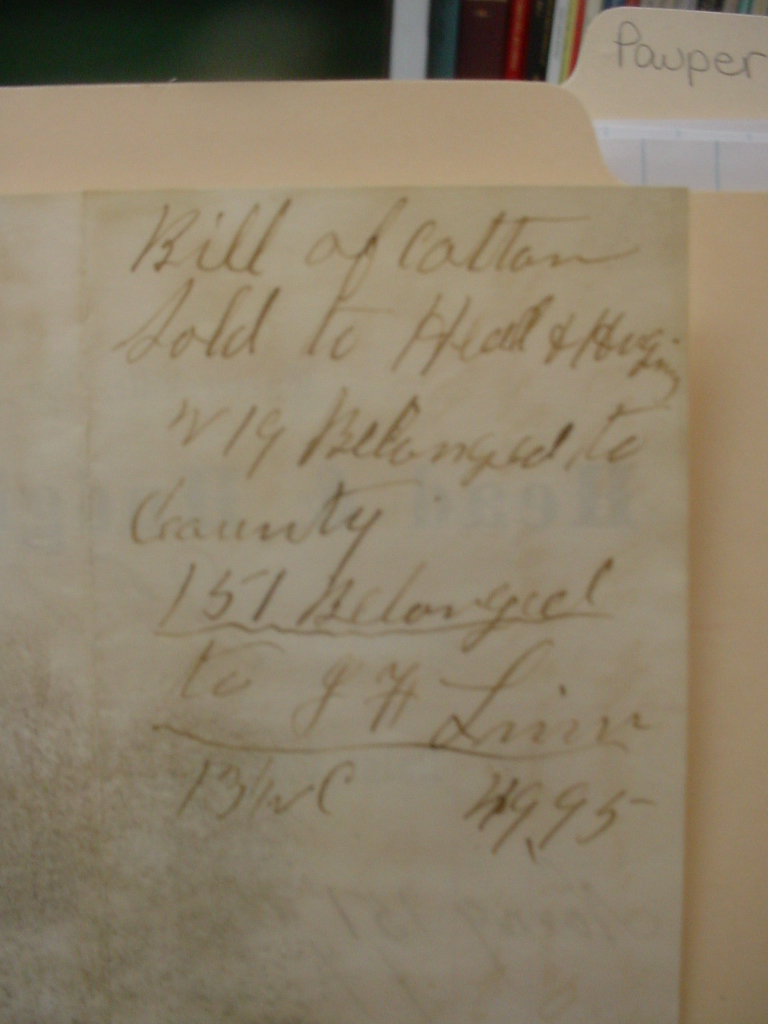 Pauper
Bill of Cotton
Sold to Head & Hug-
gins
N 19 Belonged to
County
151 Belonged
to J H Linn
13/w C 49,95